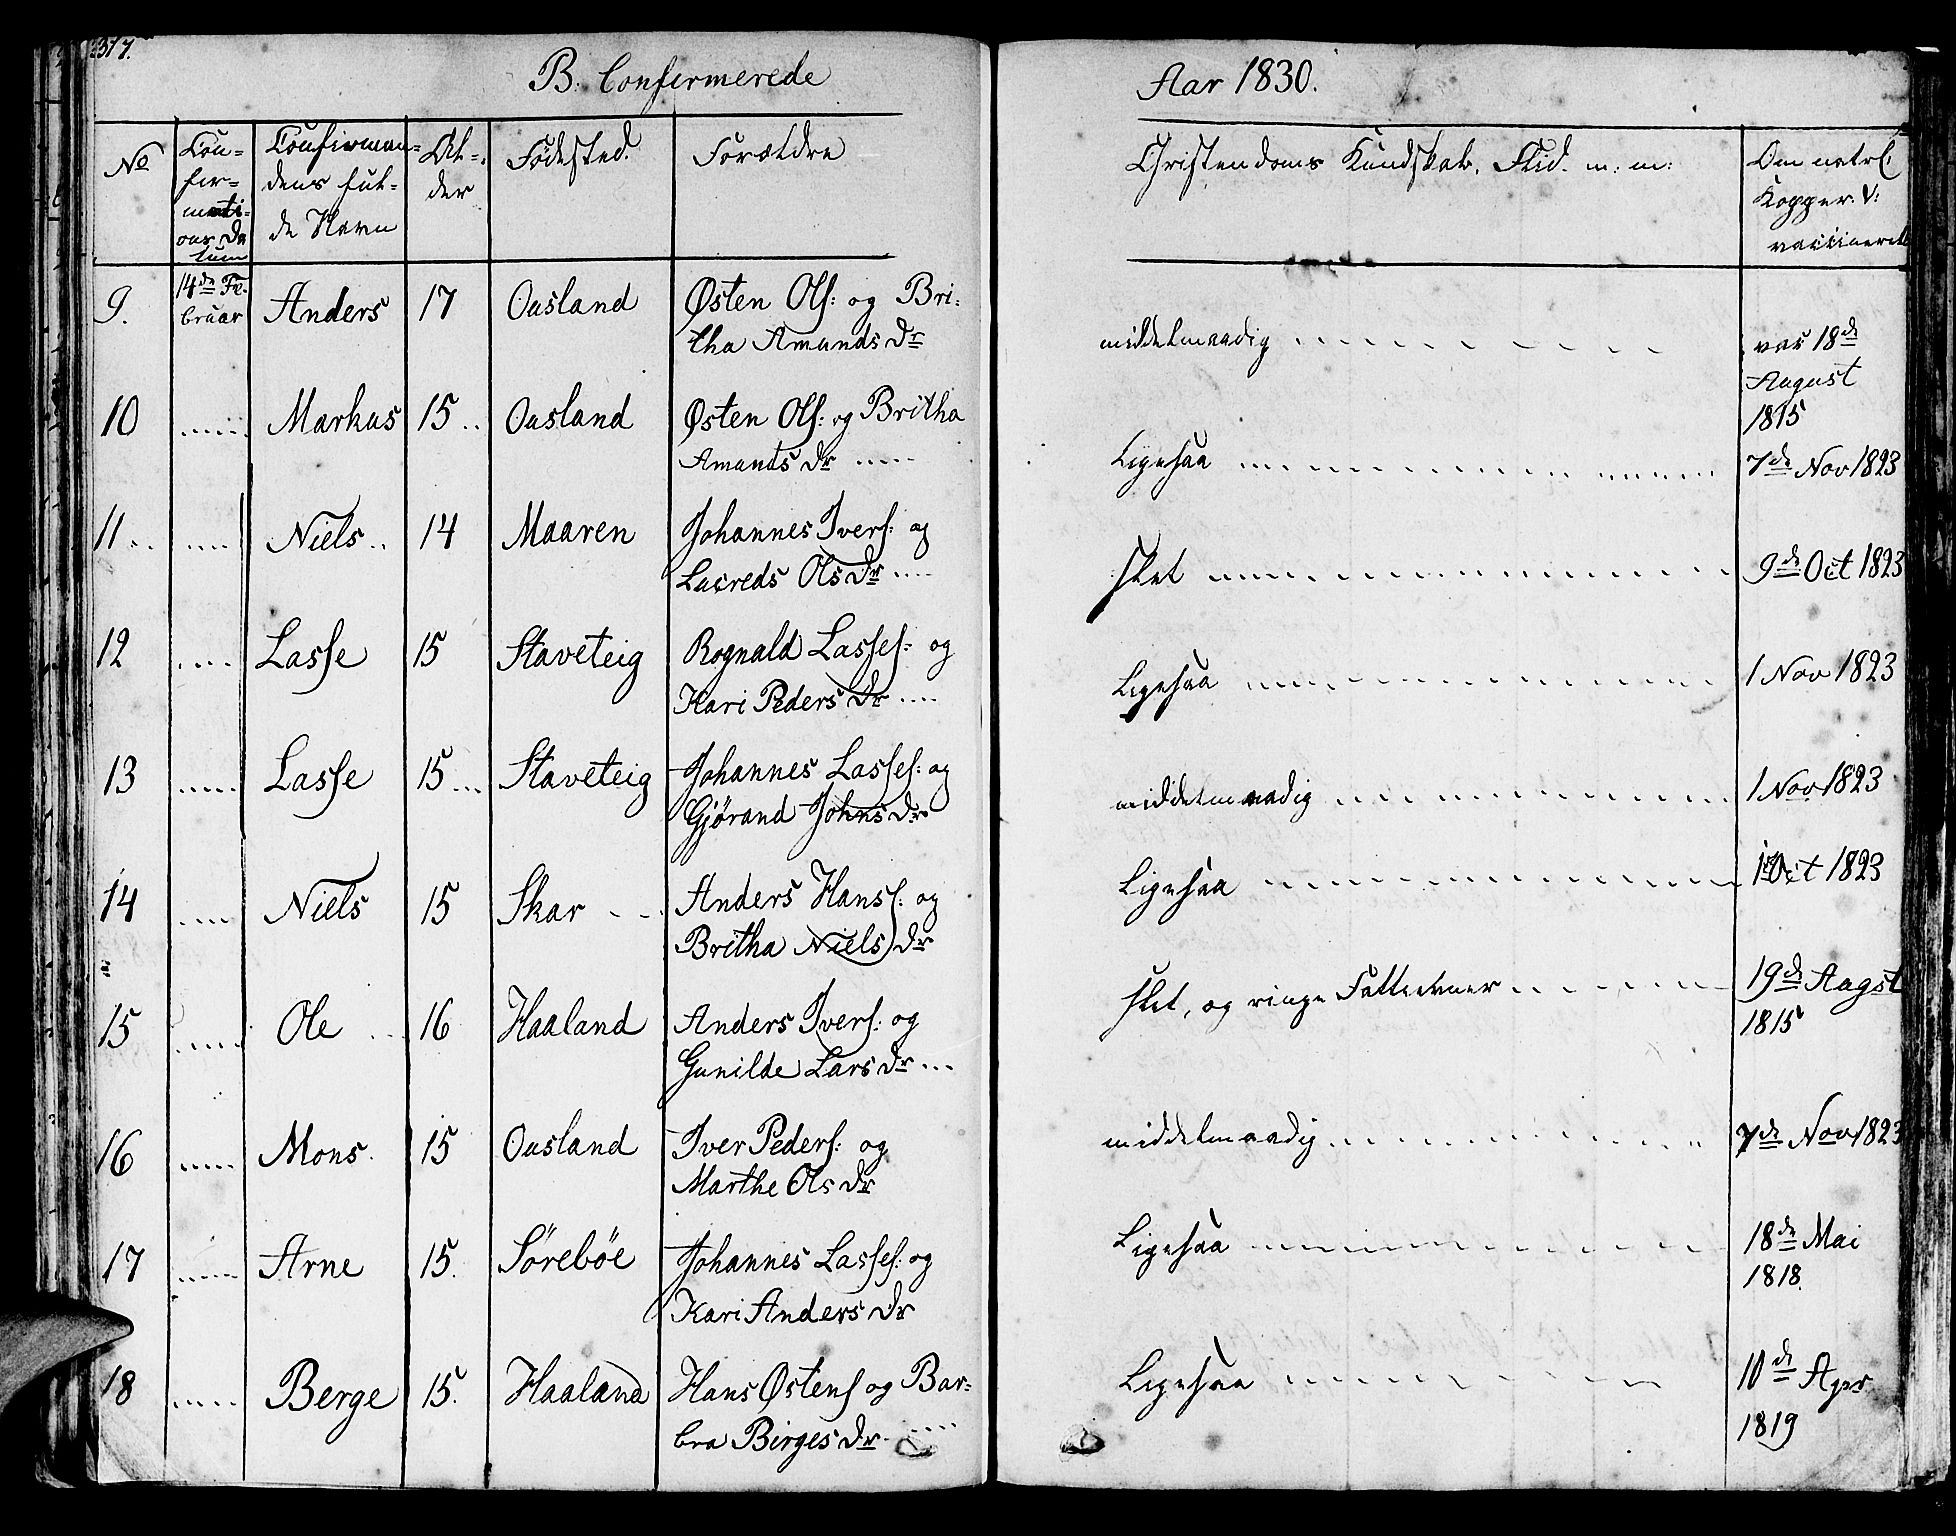 B. Confirmerede
Aar 1830.
No
Con-
fir-
mati-
ons Da
tum
Confirman-
dens ful-
de Navn
Al-
der
Födested.
Forældre
Christendoms Kundskab, Flid. m: m:
Om natrl.
Kopper. V:
vaccinered
9. 14de Fe- Anders 17 Ousland Østen Ols: og Bri-
bruar tha Amunds Dr middelmaadig var 18de
August
1815
10 Markus 15 Ousland Østen Ols: og Britha
Amunds Dr Ligesaa 7de Nov 1823
11 Niels 14 Maaren Johannes Ivers: og
Lacreds Ols Dr slet 9de Oct 1823
12 Lasse 15 Staveteig Rognald Lasses: og
Kari Peders Dr Ligesaa 1 Nov 1823
13 Lasse 15 Staveteig Johannes Lasses: og
Gjörand Johns Dr middelmaadig 1 Nov 1823
14 Niels 15 Skar Anders Hans: og
Britha Niels Dr Ligesaa Oct 1823
15 Ole 16 Haaland Anders Ivers: og
Gunilde Lars Dr slet, og ringe Fatteevner 19de Augst
1815
16 Mons 15 Ousland Iver Peders: og
Marthe Ols Dr middelmaadig 7de Nov 1823
17 Arne 15. Sörebøe Johannes Lasses: og
Kari Anders Dr Ligesaa 18de Mai
1818.
18 Berge 15. Haaland Hans Østens og Bar-
bra Birges Dr Ligesaa 10de Apr
1819